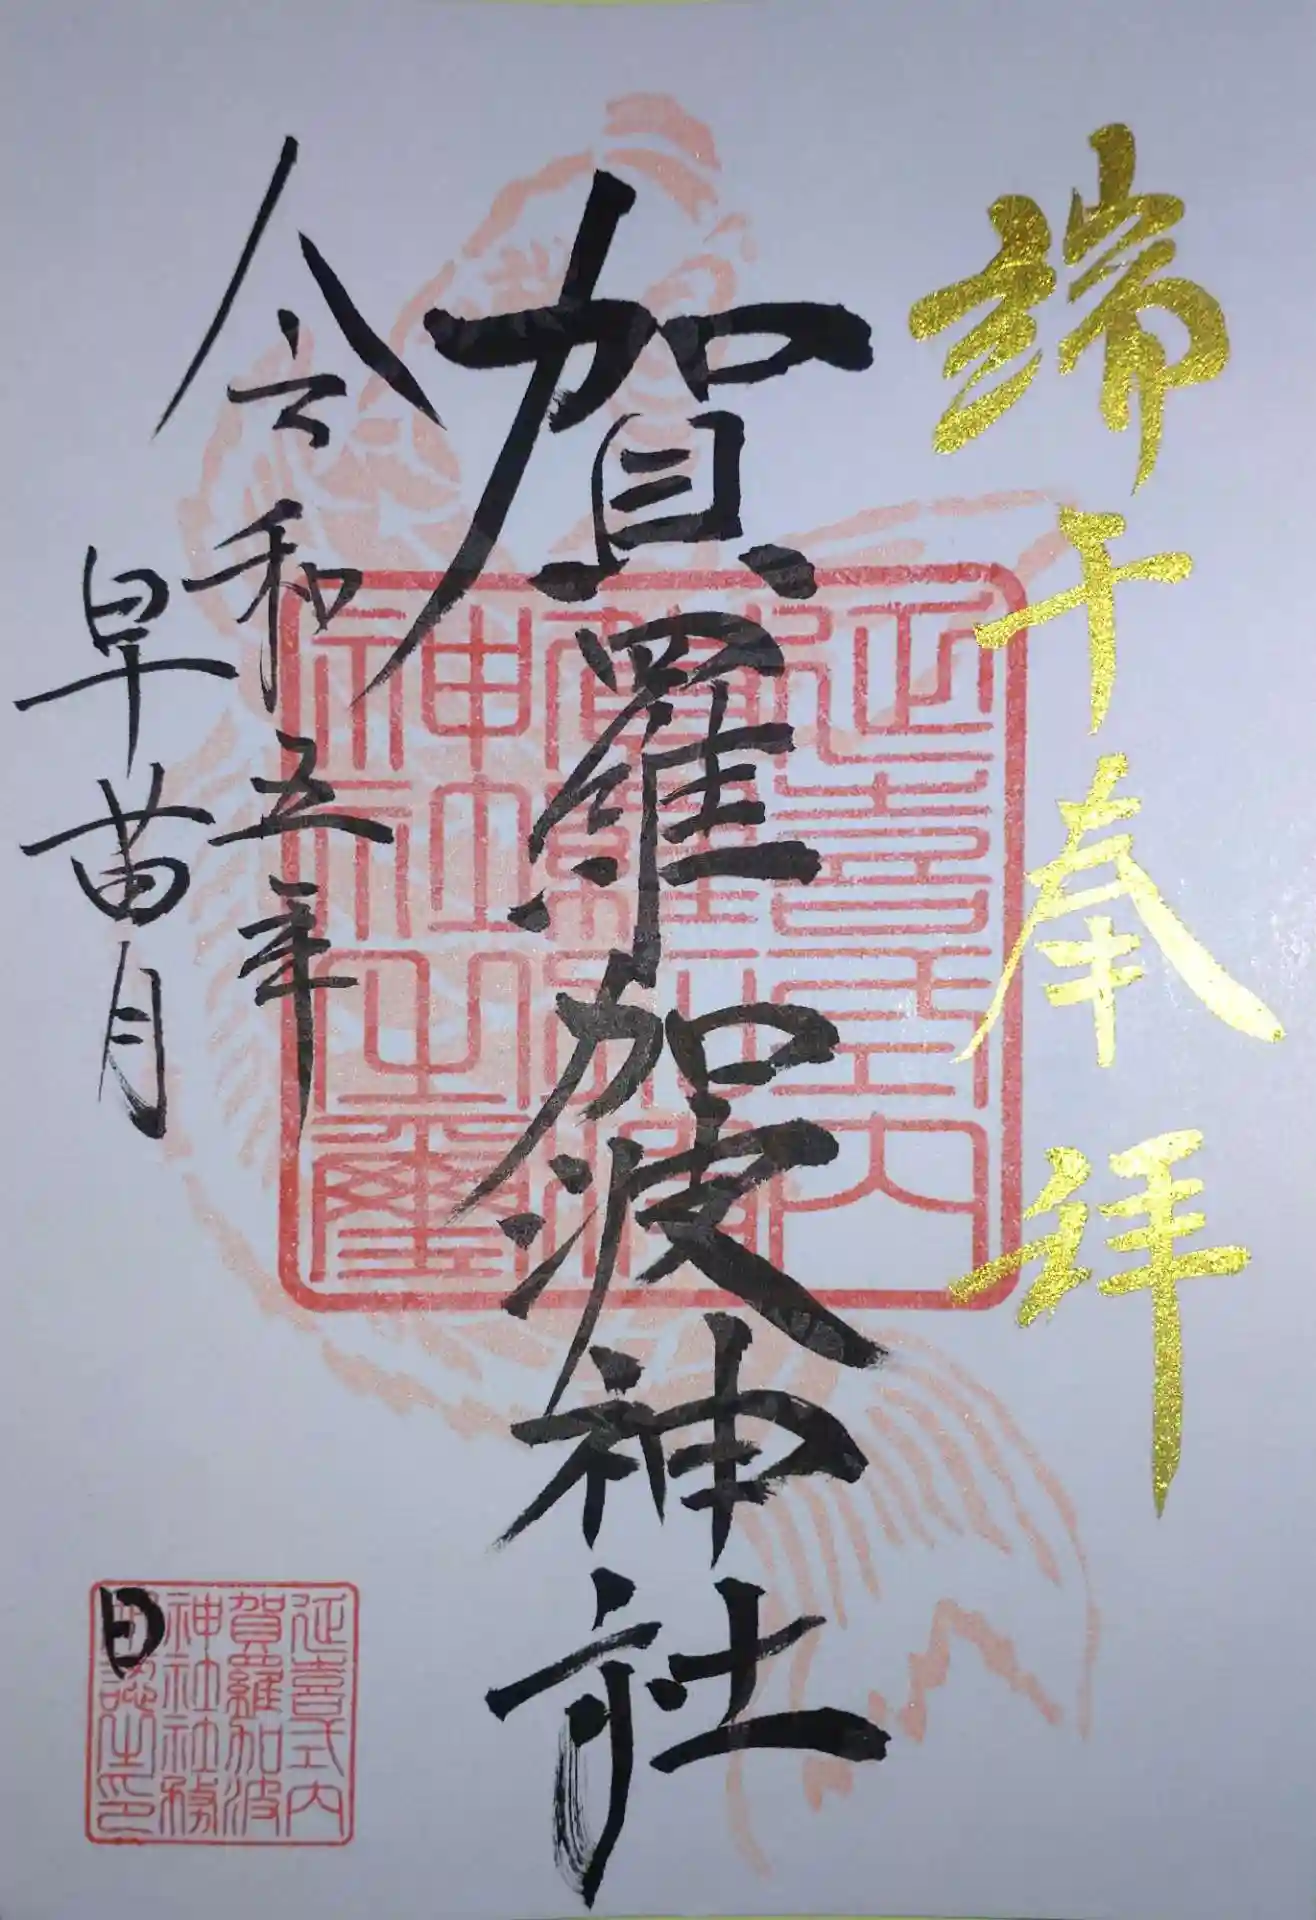 端午奉拝
賀羅加波神社
令和五年
早苗月
日
延喜式内
賀羅加波
神社之璽
延喜式内
賀羅加波
神社社務
認之印